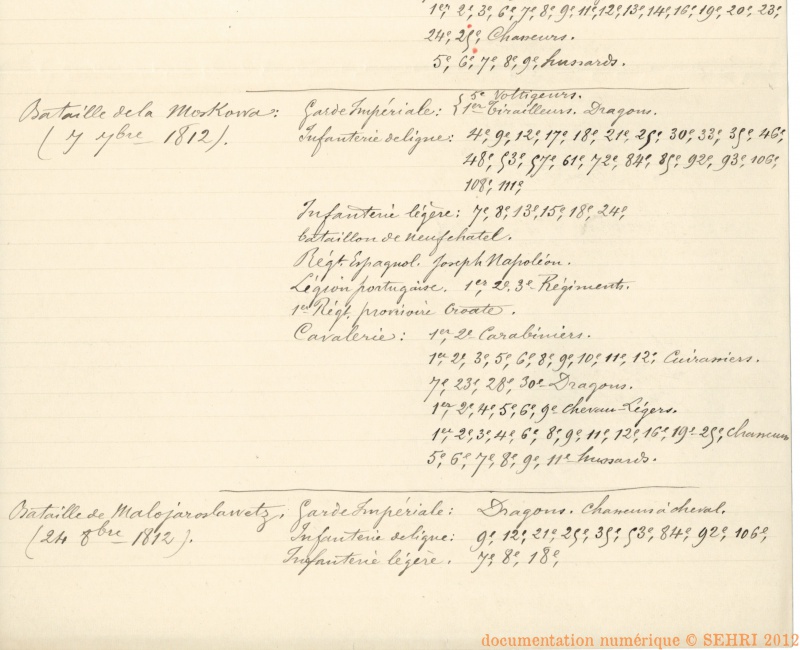 1er, 2e, 3e, 6e, 7e, 8e, 9e, 11e, 12e, 13e, 14e, 16e, 19e, 20e, 23e,
24e, 25e, Chasseurs.
5e, 6e, 7e, 8e, 9e, hussards.
Bataille de la Moskowa: Garde Impériale: { 5e Voltigeurs.
1er Tirailleurs. Dragons.
(7 7bre 1812). Infanterie de ligne: 4e, 9e, 12e, 17e, 18e, 21e, 25e, 30e, 33e, 35e, 46e,
48e, 53e, 57e, 61e, 72e, 84e, 85e, 92e, 93e, 106e,
108e, 111e,
Infanterie légère: 7e, 8e, 13e, 15e, 18e, 24e,
bataillon de neufchatel.
Régt. Espagnol. Joseph Napoléon.
Légion portugaise. 1er, 2e, 3e Régiments.
1er Régt. provisoire Croate.
Cavalerie: 1er, 2e Carabiniers.
1er, 2e, 3e, 5e, 6e, 8e, 9e, 10e, 11e, 12e, Cuirassiers.
7e, 23e, 28e, 30e Dragons.
1er, 2e, 4e, 5e, 6e, 9e chevau-Légers.
1er, 2e, 3e, 4e, 6e, 8e, 9e, 11e, 12e, 16e, 19e 25e, chasseurs
5e, 6e, 7e, 8e, 9e, 11e hussards.
Bataille de Malojaroslawetz. Garde Impériale: Dragons. Chasseurs à cheval.
(24 8bre 1812). Infanterie de ligne: 9e, 12e, 21e, 25e, 35e, 53e, 84e, 92e, 106e,
Infanterie légère. 7e, 8e, 18e,
documentation numérique © SEHRI 2012